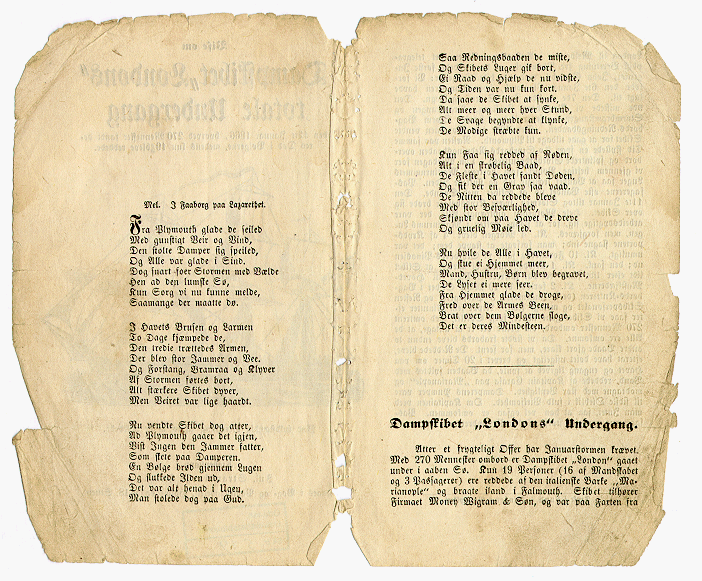 Mel. I Faaborg paa Lazarethet.
Fra Plymouth glade de seiled
Med gunstigt Veir og Vind,
Den stolte Damper sig speiled,
Og Alle var glade i Sind.
Dog snart foer Stormen med Vælde
Hen ad den lumske Sø,
Kun Sorg vi nu kunne melde,
Saamange der maatte dø.
I Havets Brusen og Larmen
To Dage kjæmpede de,
Den tredie trættedes Armen,
Der blev stor Jammer og Vee.
Og Forstang, Bramraa og Klyver
Af Stormen førtes bort,
Alt stærkere Skibet dyver,
Men Veiret var lige haardt.
Nu vendte Skibet dog atter,
Ad Plymouth gaaer det igjen,
Vist Ingen den Jammer fatter,
Som skete paa Damperen.
En Bølge brød gjennem Lugen
Og slukkede Ilden ud,
Det var alt henad i Ugen,
Man stolede dog paa Gud.
Saa Redningsbaaden de miste,
Og Skibets Luger gik bort,
Ei Raad og Hjælp de nu vidste,
Og Tiden var nu kun kort.
Da saae de Skibet at synke,
Alt meer og meer hver Stund,
De Svage begyndte at klynke,
De Modige stræbte kun.
Kun Faa sig redded af Nøden,
Alt i en skrøbelig Baad,
De Fleste i Havet fandt Døden,
Og fik der en Grav saa vaad.
De Nitten da reddede bleve
Med stor Besværlighed,
Skjøndt om paa Havet de dreve
Og gruelig Møie led.
Nu hvile de Alle i Havet,
Og skue ei Hjemmet meer,
Mand, Hustru, Børn blev begravet,
De Lyset ei mere seer.
Fra Hjemmet glade de droge,
Fred over de Armes Been,
Brat over dem Bølgerne sloge,
Det er deres Mindesteen.
Dampskibet „Londons“ Undergang.
Atter et frygteligt Offer har Januarstormen krævet.
Med 270 Mennesker ombord er Dampskibet „London“ gaaet
under i aaben Sø. Kun 19 Personer (16 af Mandskabet
og 3 Passagerer) ere reddede af den italienske Barke „Ma-
rianople“ og bragte iland i Falmouth. Skibet tilhører
Firmaet Money Wigram & Søn, og var paa Farten fra